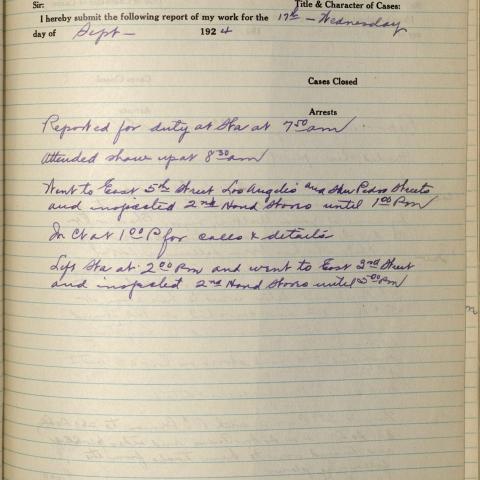 Sir:
Title & Character of Cases:
I hereby submit the following report of my work for the 17th - Wednesday
day of Sept - 1924
Cases Closed
Arrests
Reported for duty at Sta at 7 50 am
Attended show up at 8 30 am
Went to East 5th Street Los Angeles and San Pedro Streets
and inspected 2nd Hand Stores until 1 00 PM
In at 1 00 P for calls & details
Left Sta at 2 00 Pm and went to East 2nd Street
and inspected 2nd Hand Stores until 5 00 Pm